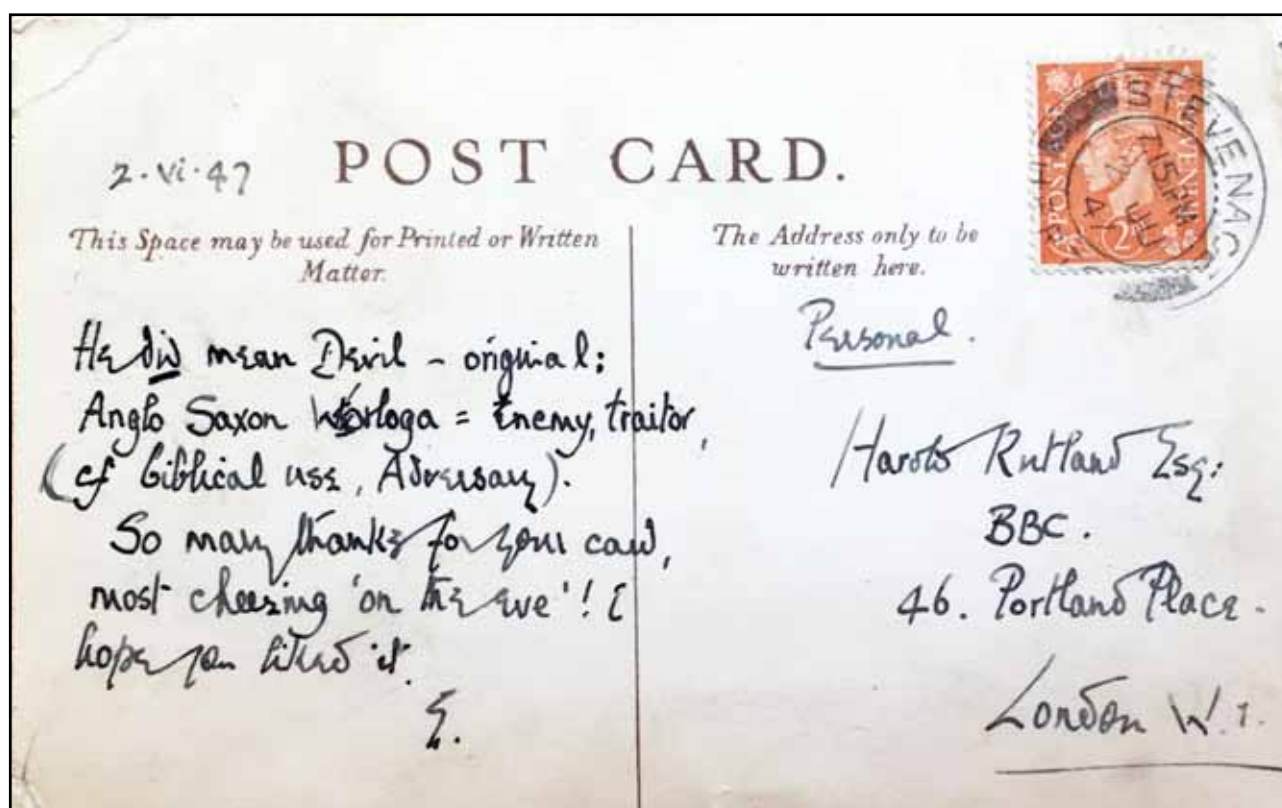 2·vi·47
POST CARD.
This Space may be used for Printed or Written
Matter.
He did mean Devil – original:
Anglo Saxon Wǣrloga = Enemy, traitor,
(cf biblical use, Adversary).
So many thanks for your card,
most cheering 'on the eve'! I
hope you liked it.
E.
The Address only to be
written here.
Personal.
Harold Rutland Esq:
BBC.
46. Portland Place.
London W.1.
STEVENAGE
7 15 PM
2 JU
47
POSTAGE
REVENUE
2